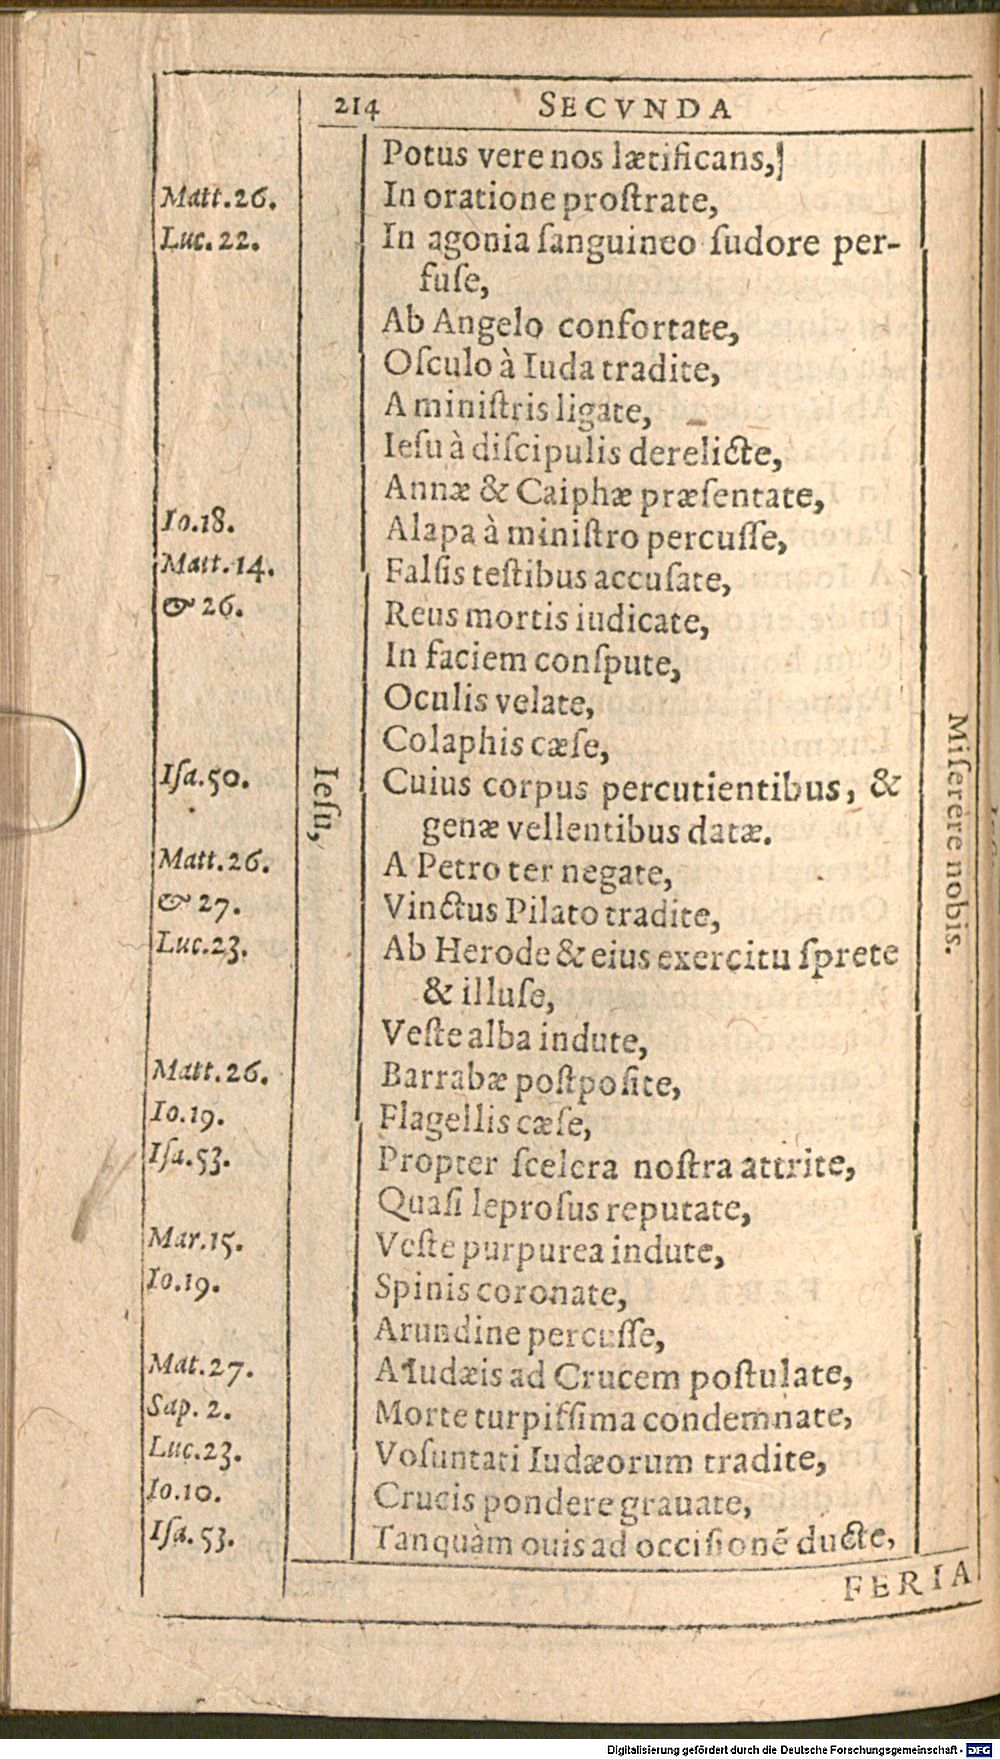 214 SECVNDA
Potus vere nos lætificans,
Matt.26. In oratione proſtrate,
Luc.22. In agonia ſanguineo ſudore per-
fuſe,
Ab Angelo confortate,
Oſculo à Iuda tradite,
A miniſtris ligate,
Ieſu à diſcipulis derelicte,
Annæ & Caiphæ præſentate,
Io.18. Alapa à miniſtro percuſſe,
Matt.14. Falſis teſtibus accuſate,
& 26. Reus mortis iudicate,
In faciem conſpute,
Oculis velate,
Colaphis cæſe,
Iſa.50. Cuius corpus percutientibus, &
genæ vellentibus datæ.
Matt.26. A Petro ter negate,
& 27. Vinctus Pilato tradite,
Luc.23. Ab Herode & eius exercitu ſprete
& illuſe,
Veſte alba indute,
Matt.26. Barrabæ poſtpoſite,
Io.19. Flagellis cæſe,
Iſa.53. Propter ſcelera noſtra attrite,
Quaſi leproſus reputate,
Mar.15. Veſte purpurea indute,
Io.19. Spinis coronate,
Arundine percuſſe,
Mat.27. A Iudæis ad Crucem poſtulate,
Sap. 2. Morte turpiſſima condemnate,
Luc.23. Voſuntati Iudæorum tradite,
Io.10. Crucis pondere grauate,
Iſa.53. Tanquàm ouis ad occiſionẽ ducte,
Ieſu,
Miſerere nobis.
FERIA
Digitalisierung gefördert durch die Deutsche Forschungsgemeinschaft - DFG